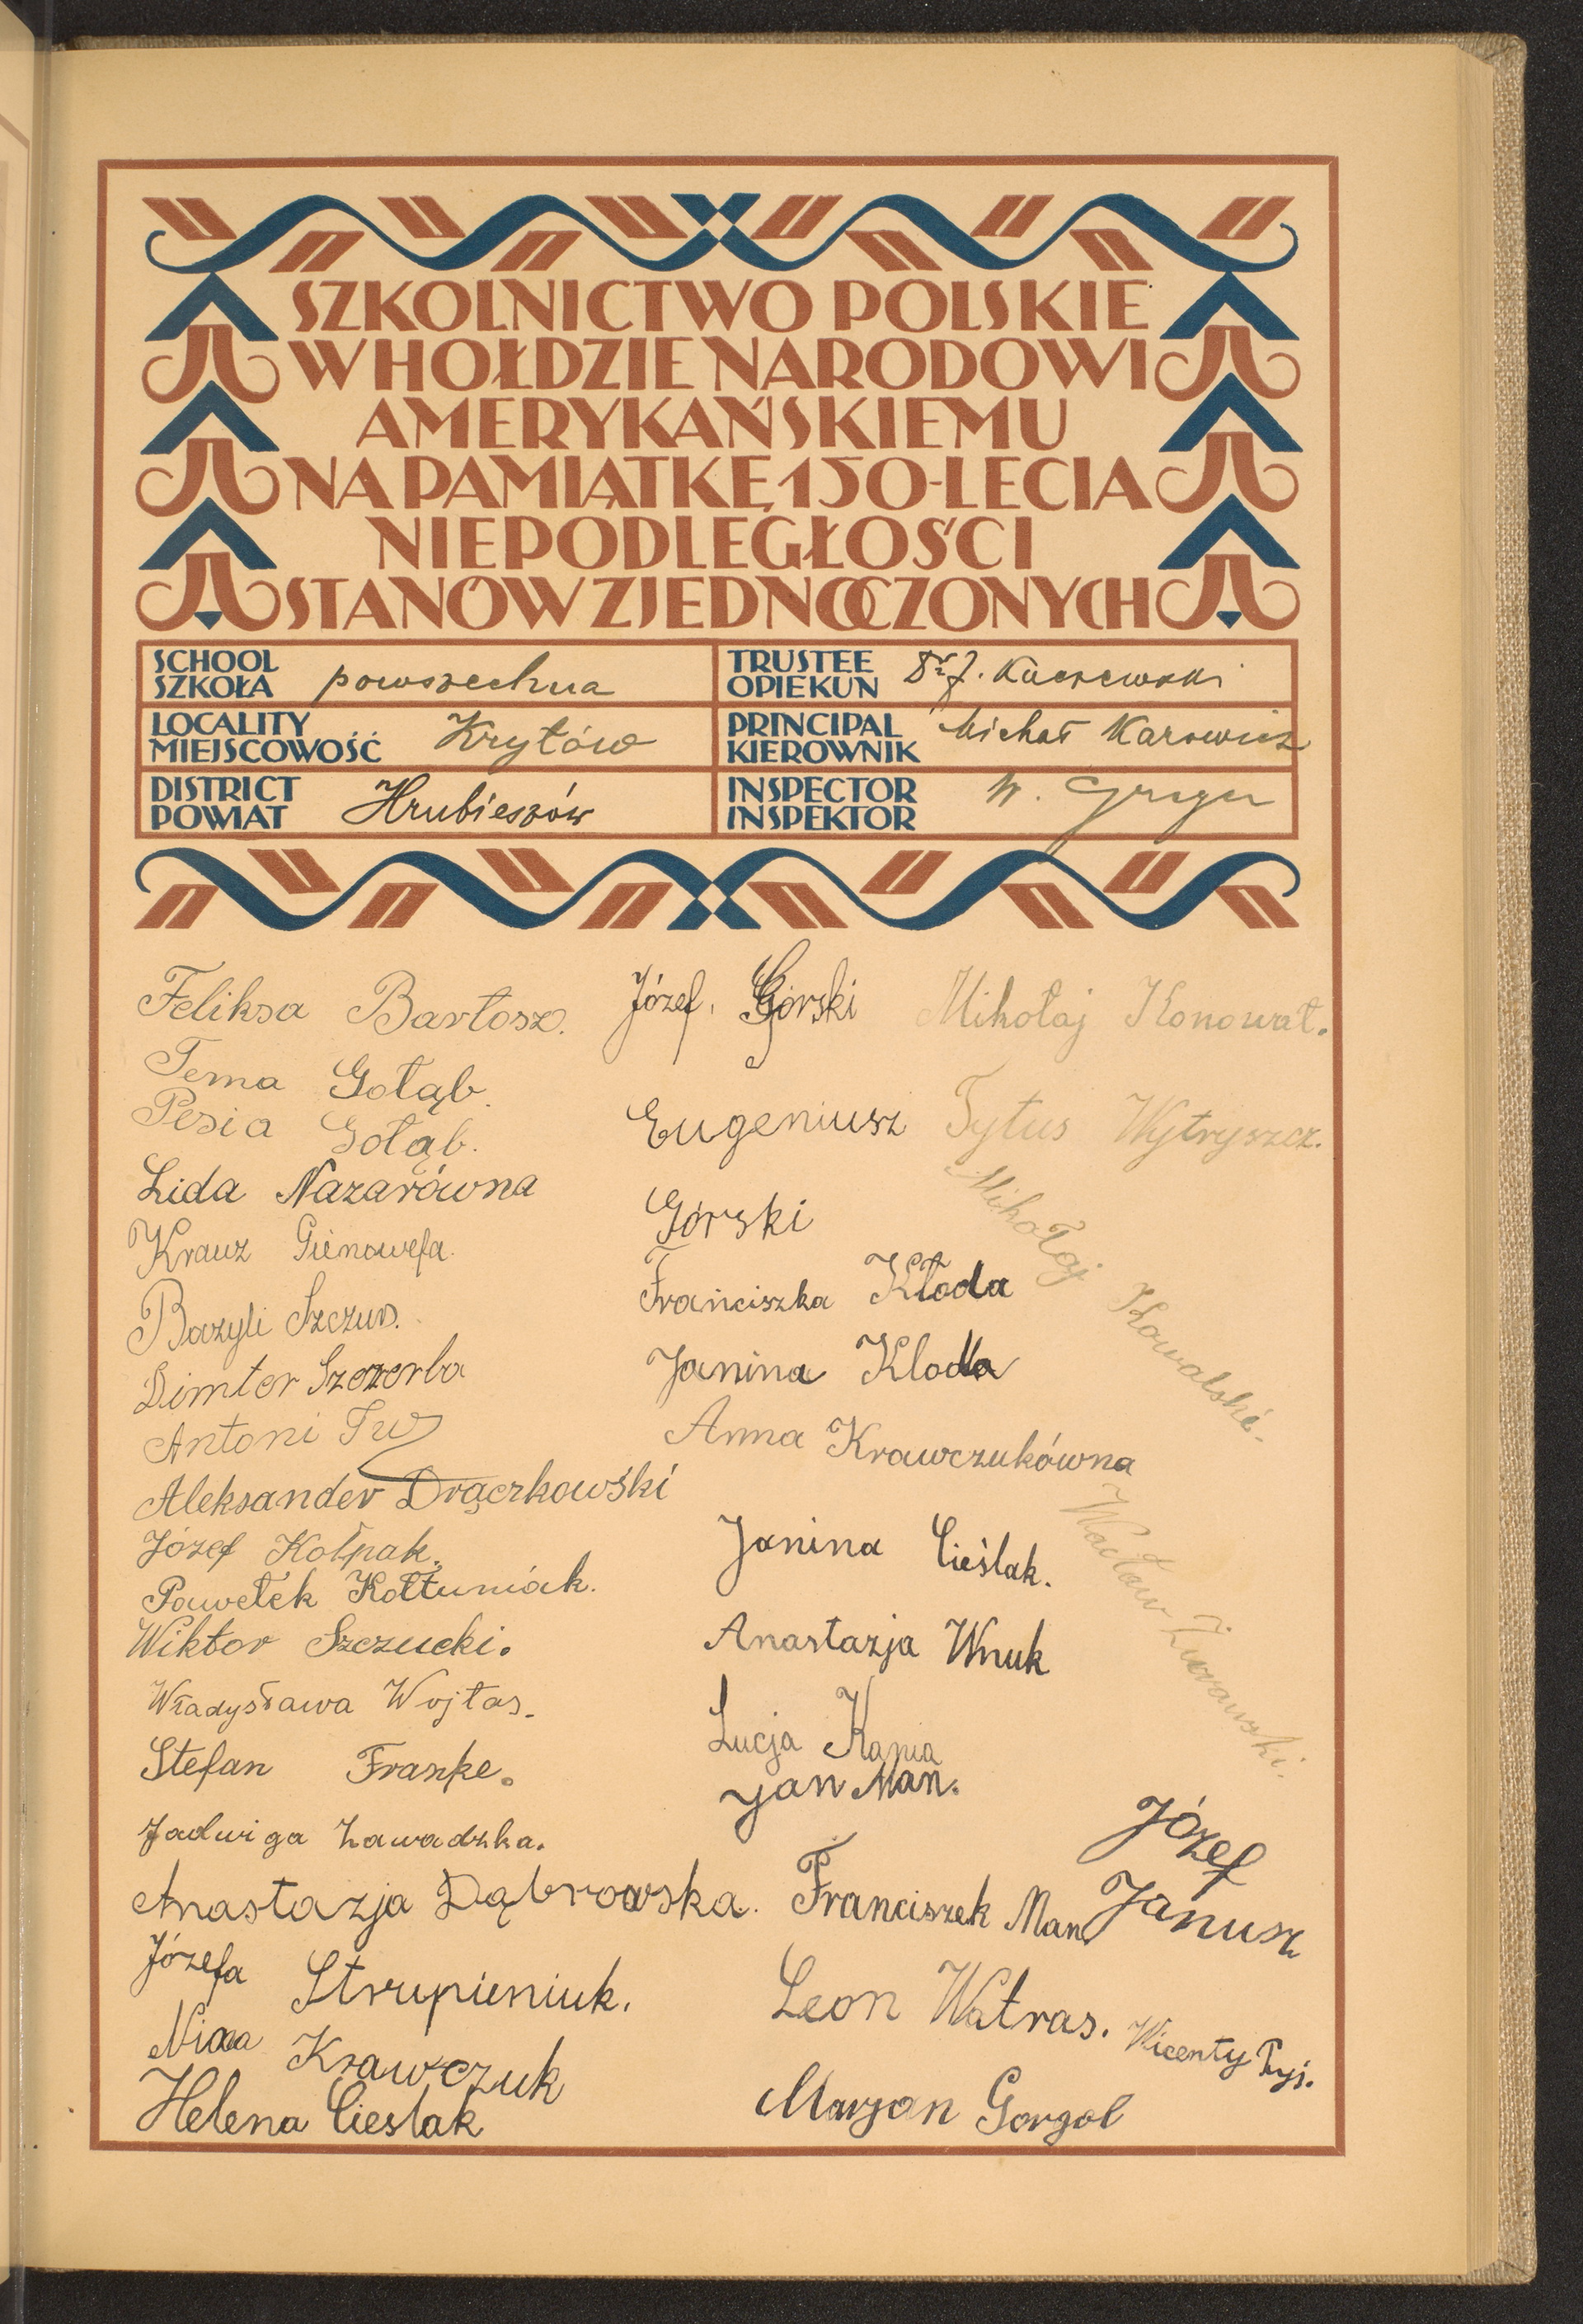 SZKOLNICTWO POLSKIE
W HOŁDZIE NARODOWI
AMERYKAŃSKIEMU
NA PAMIĄTKĘ 150-LECIA
NIEPODLEGŁOŚCI
STANÓW ZJEDNOCZONYCH
SCHOOL
SZKOŁA
powszechna
TRUSTEE
OPIEKUN
Dr J. Kaczewski
LOCALITY
MIEJSCOWOŚĆ
Kryłów
PRINCIPAL
KIEROWNIK
Michał Karowicz
DISTRICT
POWIAT
Hrubieszów
INSPECTOR
INSPEKTOR
W.
Feliksa Bartosz.
Tema Gołąb.
Pesia Gołąb.
Lida Nazarówna
Krauz Gienowefa.
Bazyli Szczur.
Dimter Szczerba
Antoni
Aleksander Drączkowski
Józef Kołpak.
Pawełek Kołtuniak.
Wiktor Szczucki.
Władysława Wojtas.
Stefan Franke.
Jadwiga Zawadzka.
Anastazja Dąbrowska.
Józefa Strupieniuk.
Nina Krawczuk
Helena Cieslak
Józef. Górski
Eugeniusz
Górski
Franciszka Kłoda
Janina Kloda
Anna Krawczukówna
Janina Cieślak.
Anastazja Wnuk
Lucja Kania
Jan Man.
Franciszek Man
Leon Watras.
Marjan Gorgol
Mikołaj Konował.
Tytus Wytryszcz.
Mikołaj Kowalski.
Wacław Żurawski.
Józef
Janusz
Wicenty Pyś.